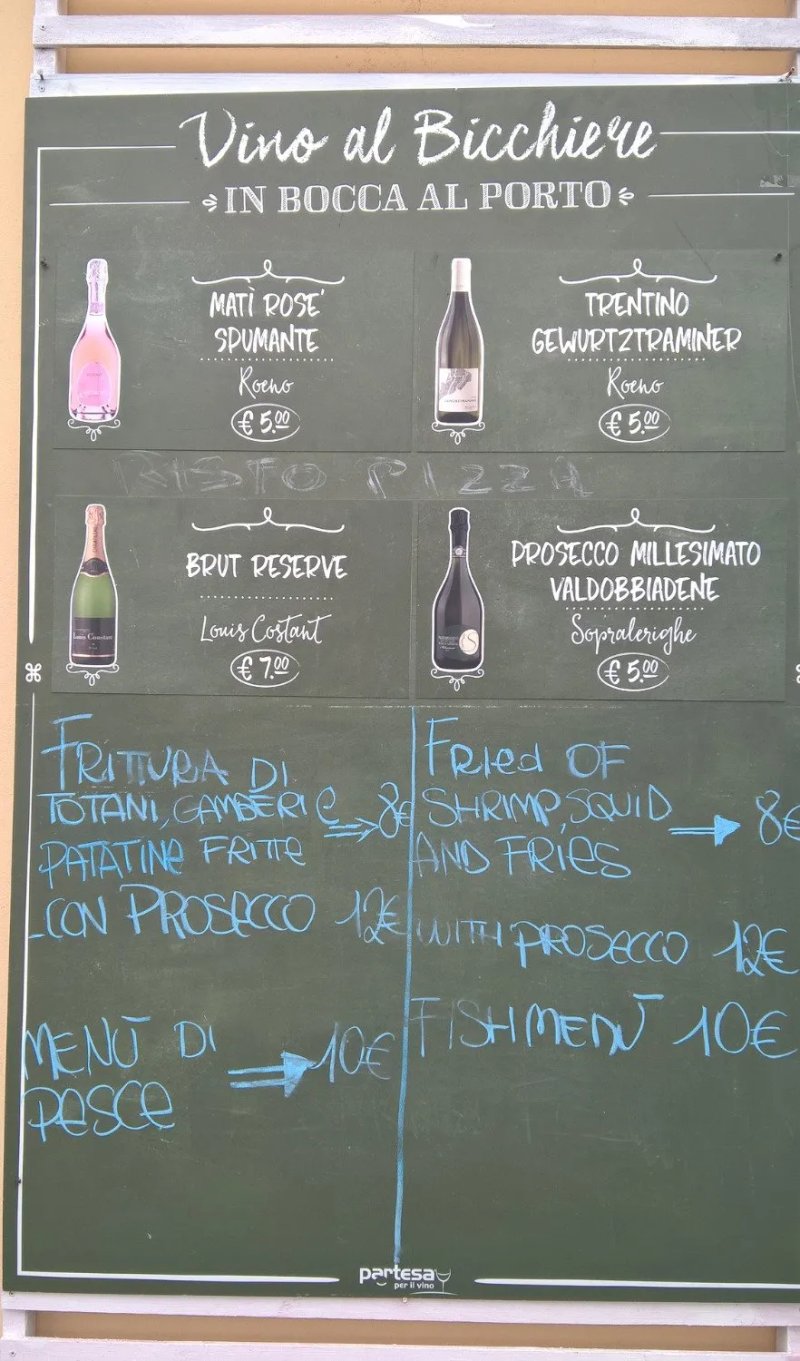 Vino al Bicchiere
IN BOCCA AL PORTO
MATÌ ROSE'
SPUMANTE
Roeno
€ 5.00
TRENTINO
GEWURTZTRAMINER
Roeno
€ 5.00
RISTO PIZZA
BRUT RESERVE
Louis Costant
€ 7.00
PROSECCO MILLESIMATO
VALDOBBIADENE
Sopralerighe
€ 5.00
FRITTURA DI
TOTANI, GAMBERI e
PATATINE FRITTE
8€
CON PROSECCO 12€
MENÙ DI
PESCE
10€
FRIED OF
SHRIMP, SQUID
AND FRIES
8€
WITH PROSECCO 12€
FISH MENÙ 10€
partesa
per il vino